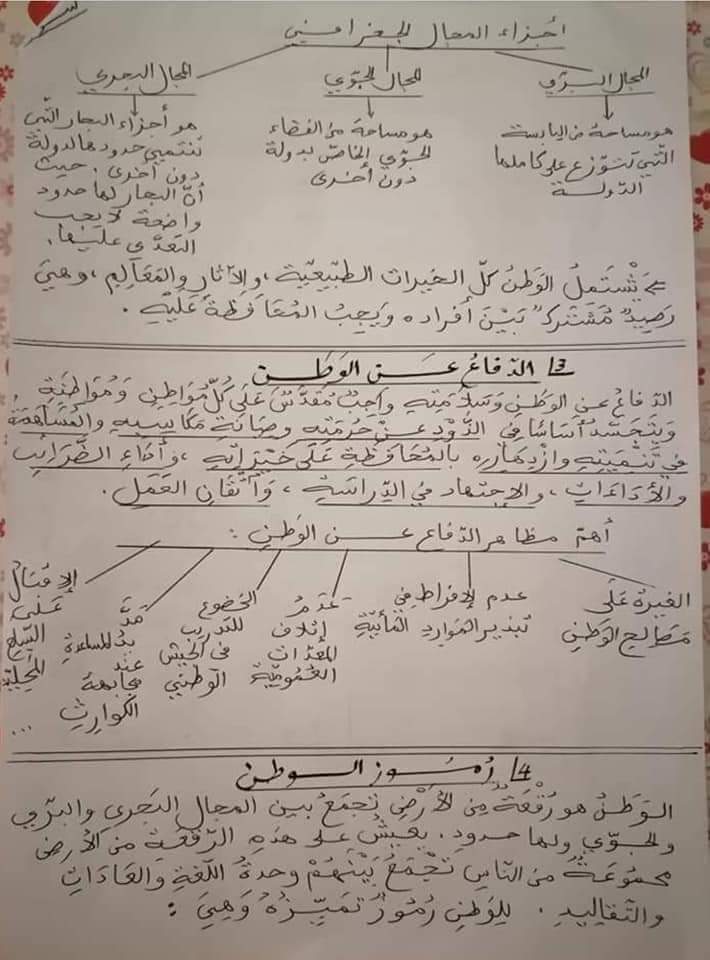 أجزاء المجال الجغرافي
المجال البرّي
هو مساحة من اليابسة
التي تتوزع على كاملها
الدّولة
المجال الجوّي
هو مساحة من الفضاء
الجوّي الخاصّ بدولة
دون أخرى
المجال البحري
هو أجزاء البحار التّي
تنتمي حدودها لدولة
دون أخرى، حيث
أنّ البحار لها حدود
واضحة لا يجب
التّعدّي عليها.
⇐ يَشْتَمِلُ الوَطَنُ كلّ الخيرات الطّبيعيّة، والآثار والمَعَالِمِ، وهيَ
رَصِيدٌ مُشْتَركٌ بَيْنَ أفراده ويَجِبُ المُحَافَظَةُ عَلَيْهِ.
3/ الدّفاعُ عَنِ الوَطَنِ
الدّفاعُ عنِ الوَطَنِ وَسَلاَمَتِهِ وَاجِبٌ مُقَدَّسٌ عَلَى كُلِّ مُوَاطِنٍ وَمُوَاطِنَةٍ
وَيَتَجَسَّدُ أسَاسًا في الذَّوْدِ عَنْ حُرْمَتِهِ وصِيَانَةِ مَكَاسِبِهِ والمُسَاهَمَةِ
فِي تَنْمِيَتِهِ وازْدِهَارِهِ بالمُحَافَظَةِ عَلَى خَيْرَاتِهِ، وأَدَاءِ الضَّرَائِبِ
والأَدَاءَاتِ، والاِجتهاد فِي الدِّرَاسَةِ، وَإتْقَانِ العَمَلِ.
أهمّ مظاهر الدّفاع عَنِ الوَطَنِ:
الغيرة عَلَى
مَصَالِحِ الوَطَنِ
عدم الإفراط في
تبذير المَوارِدِ المَائيّة
عَدَمُ
إتلاف
المعدّات
العُمُوميَّة
الخضوع
للتّدريب
في الجيش
الوطني
مَدَّ
يد المساعدة
عند
مجابهة
الكوارث
الإقبال
عَلَى
السّلع
المحليّة
...
4/ رُمُوز الوطن
الوَطَنُ هو رُقْعَةٌ مِنَ الأَرْضِ تَجمَعُ بين المجال البَحري والبرّي
والجوّي ولها حدود. يعيشُ على هذهِ الرّقْعَةِ من الأرض
مجموعَةٌ من النّاسِ تَجْمَعُ بَيْنَهُمْ وحدةُ اللّغةِ والعَادَاتِ
والتّقاليدِ. لِلوَطَنِ رُمُوزٌ تُمَيِّزُهُ وَهِيَ: